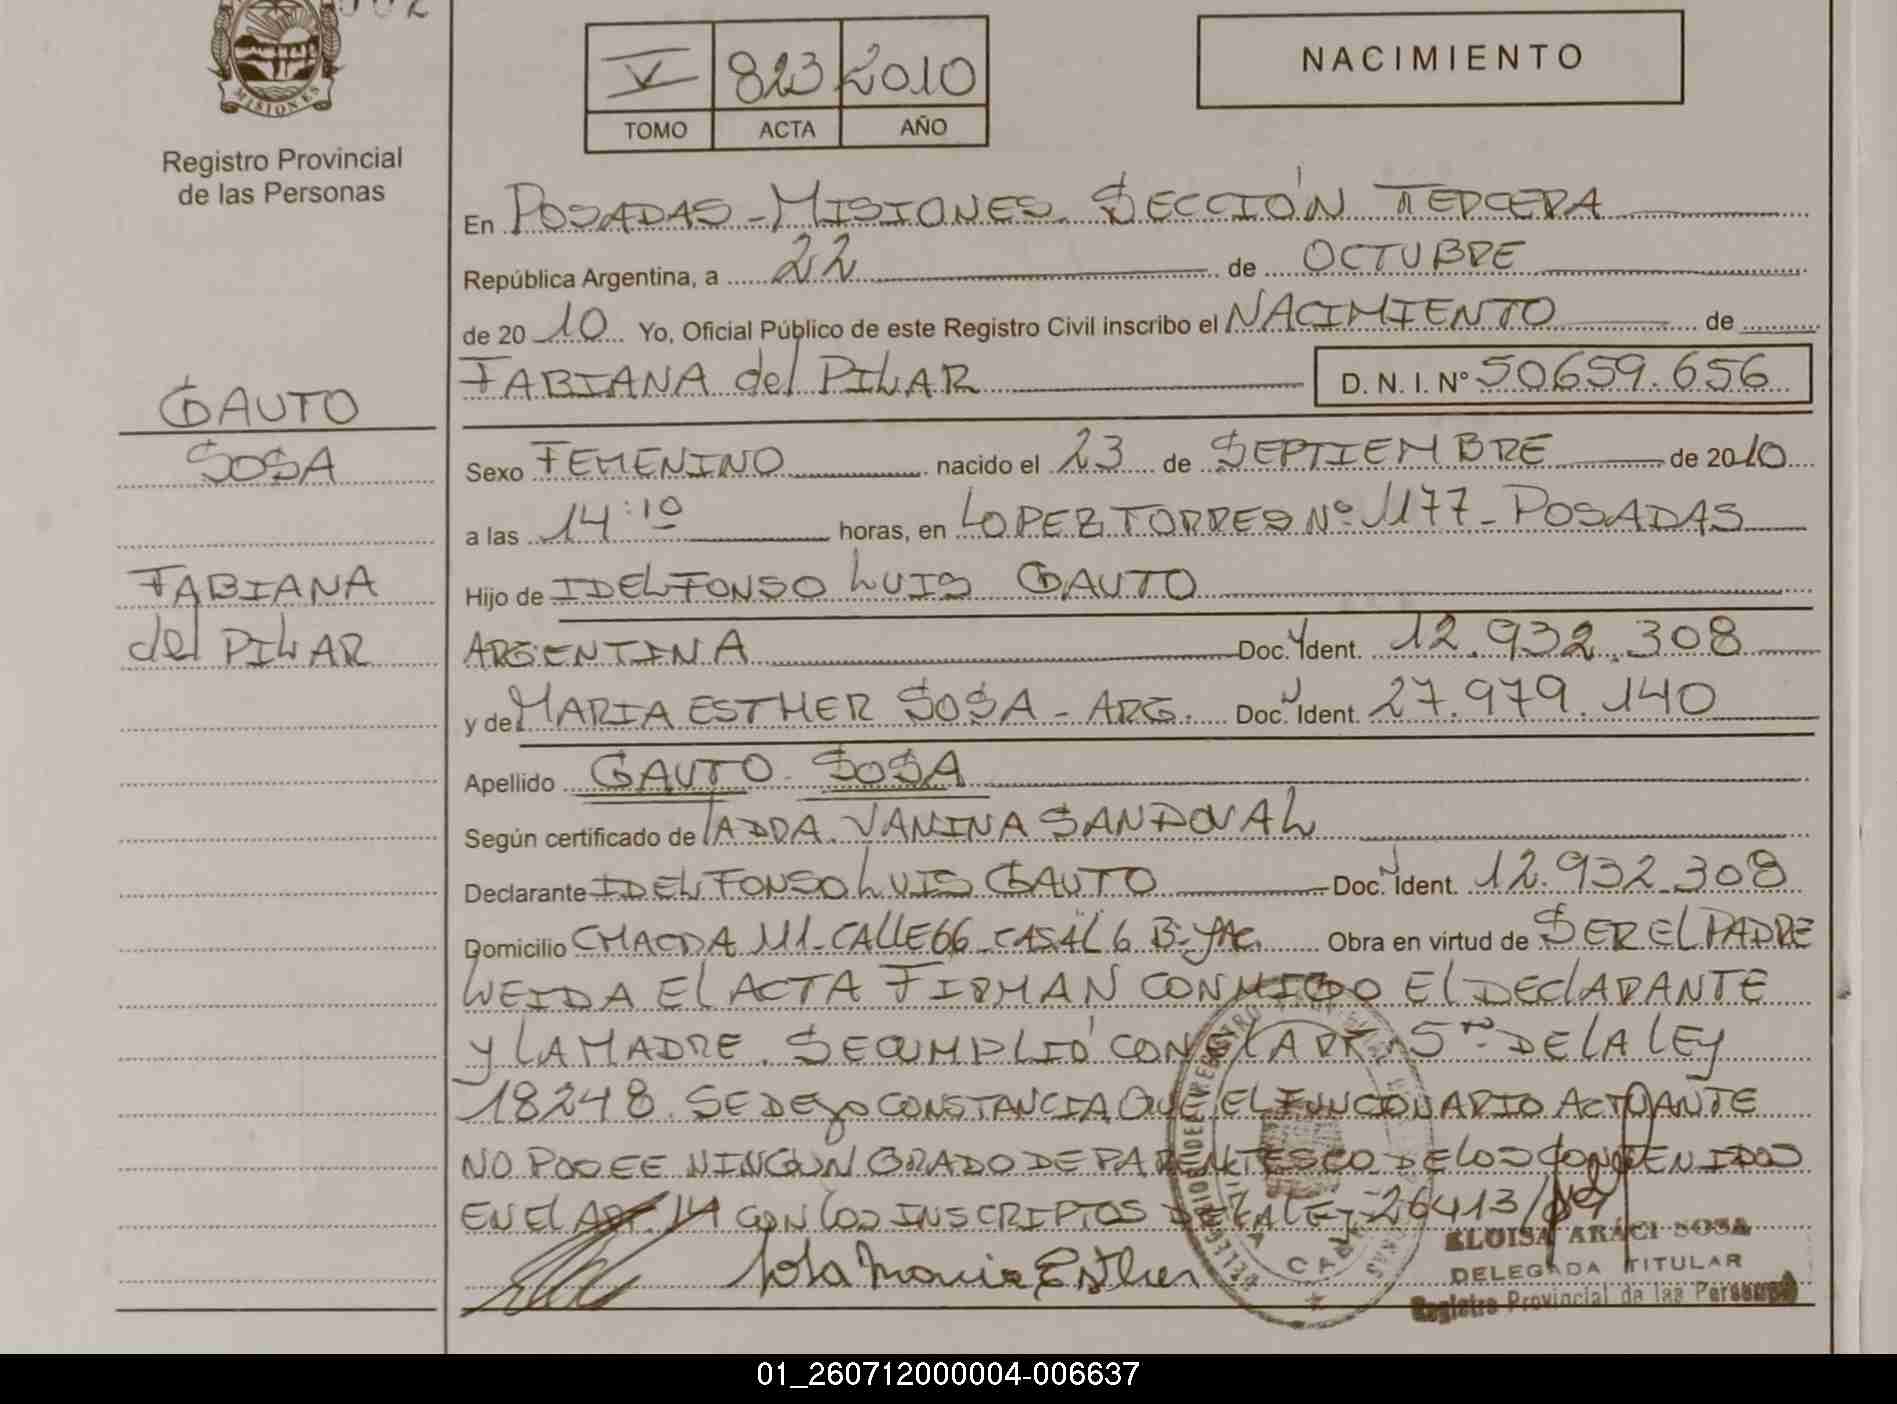 MISIONES
Registro Provincial
de las Personas
V 823 2010
TOMO ACTA AÑO
NACIMIENTO
En POSADAS - MISIONES SECCIÓN TERCERA
República Argentina, a 22 de OCTUBRE
de 2010 Yo, Oficial Público de este Registro Civil inscribo el NACIMIENTO de
FABIANA del PILAR D. N. I. Nº 50659.656
GAUTO
SOSA
FABIANA
del PILAR
Sexo FEMENINO nacido el 23 de SEPTIEMBRE de 2010
a las 14:10 horas, en LOPEZ TORRES Nº 1177 - POSADAS
Hijo de IDELFONSO LUIS GAUTO
ARGENTINA Doc. Ident. 12.932.308
y de MARIA ESTHER SOSA - ARG. Doc. Ident. 27.979.140
Apellido GAUTO SOSA
Según certificado de VANINA SANDOVAL
Declarante IDELFONSO LUIS GAUTO Doc. Ident. 12.932.308
Domicilio CHACRA 111 - CALLE 66 - CASA Obra en virtud de SER EL PADRE
LEIDA EL ACTA FIRMAN CONMIGO EL DECLARANTE
Y LA MADRE. SE CUMPLIÓ CON EL ART. 5to DE LA LEY
18248. SE DEJO CONSTANCIA QUE EL FUNCIONARIO ACTUANTE
NO POSEE NINGUN GRADO DE PARENTESCO DE LOS CONTENIDOS
EN EL ART. 14 CON LOS INSCRIPTOS DE LA LEY 26413/09
Sosa Maria Esther
ELOISA ARACI SOSA
DELEGADA TITULAR
Registro Provincial de las Personas
01_260712000004-006637